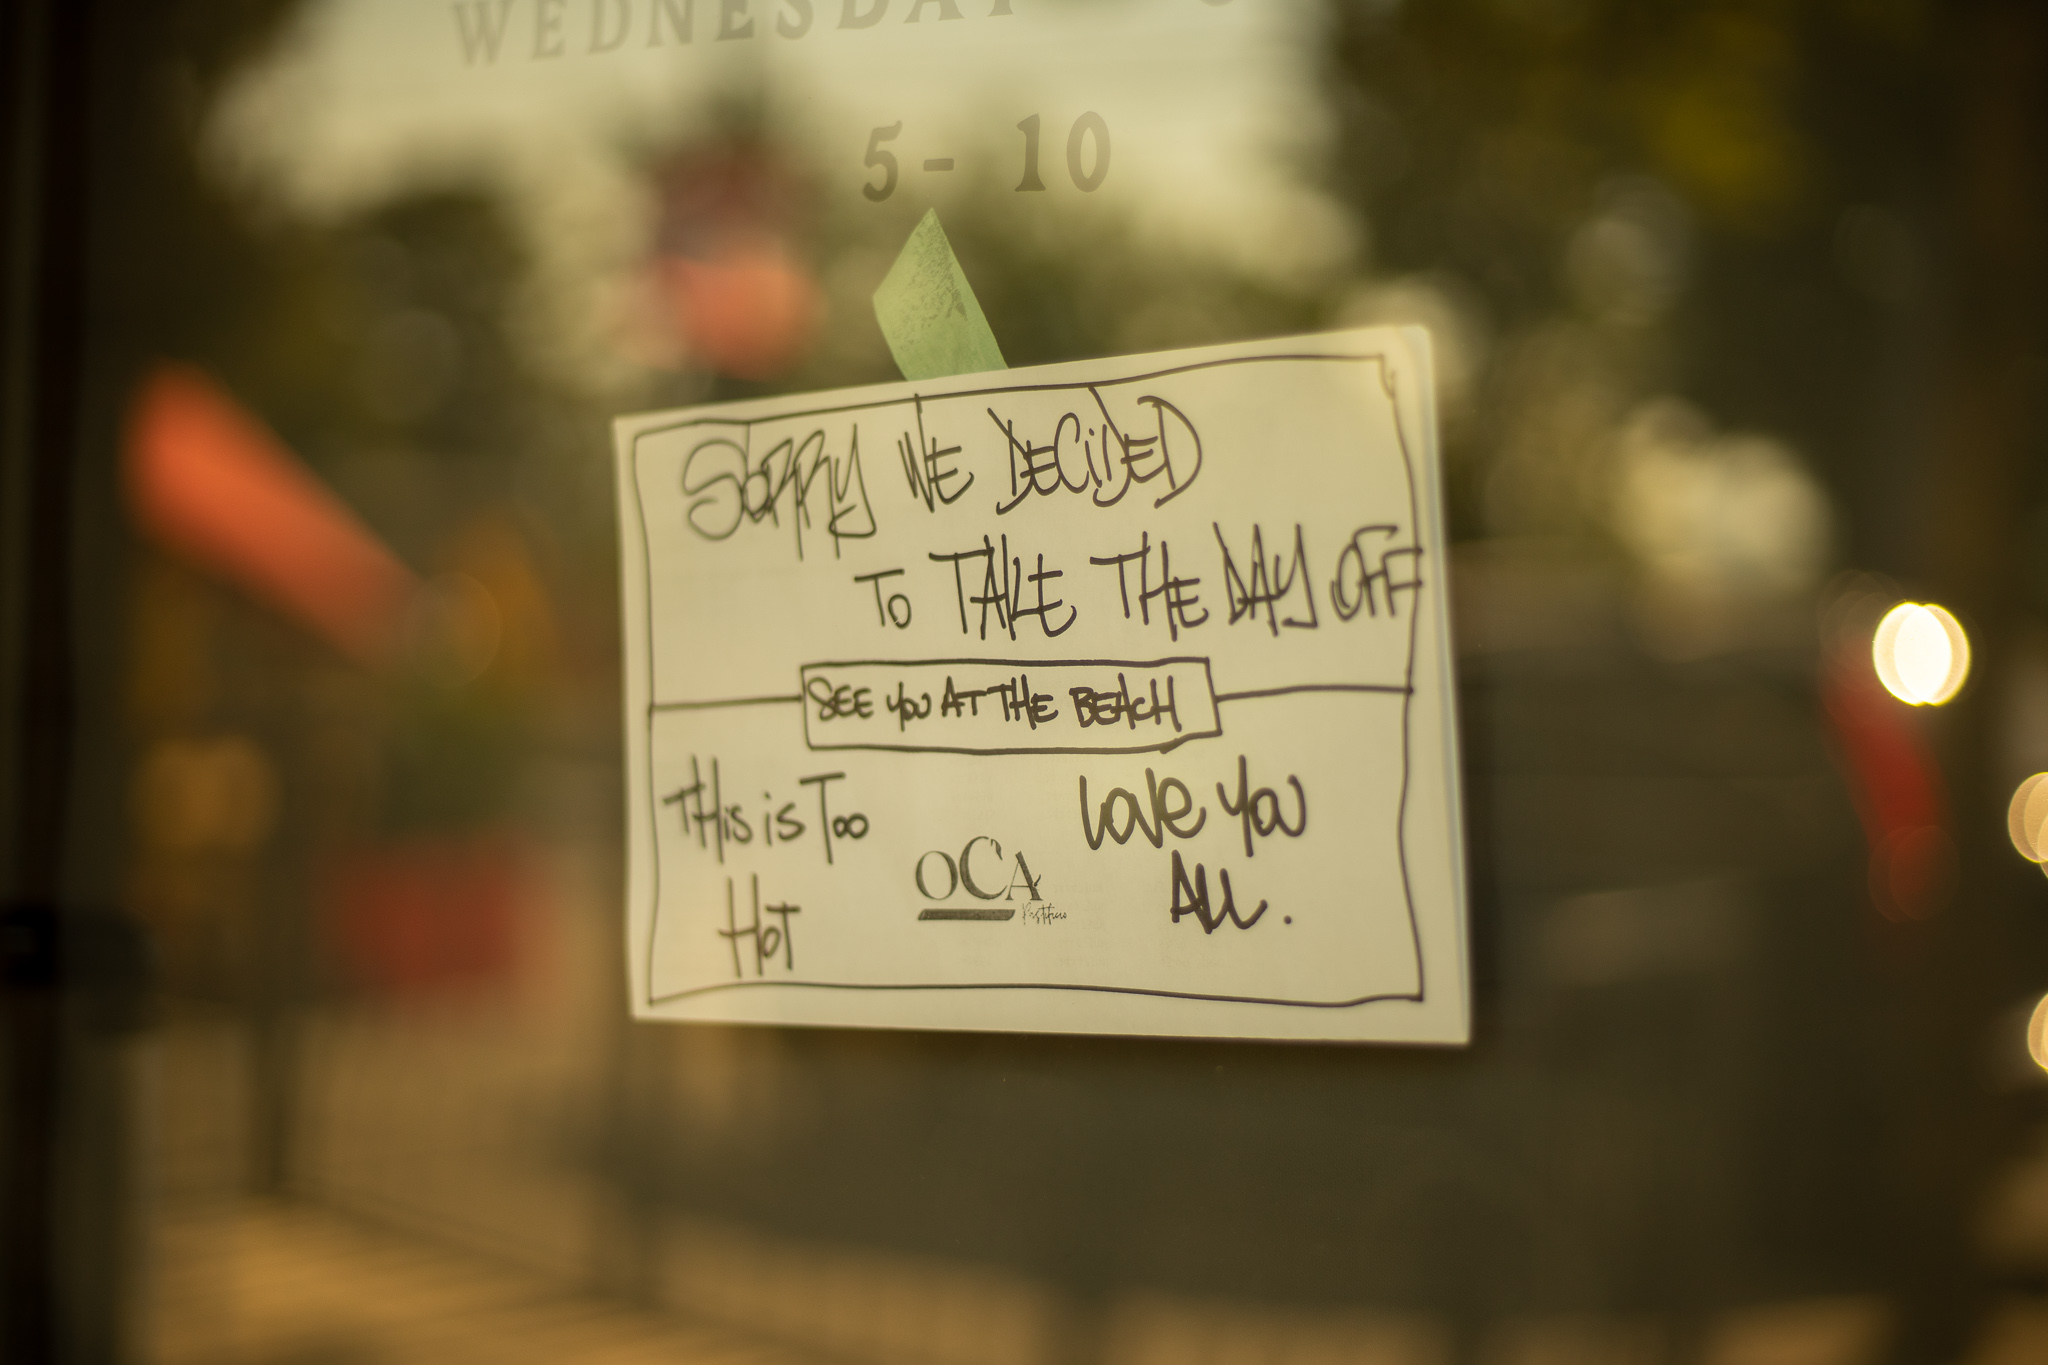 WEDNESDAY
5 - 10
SORRY WE DECIDED
TO TAKE THE DAY OFF
SEE YOU AT THE BEACH
THis is Too
HOT
OCA
Pastificio
Love You
ALL.